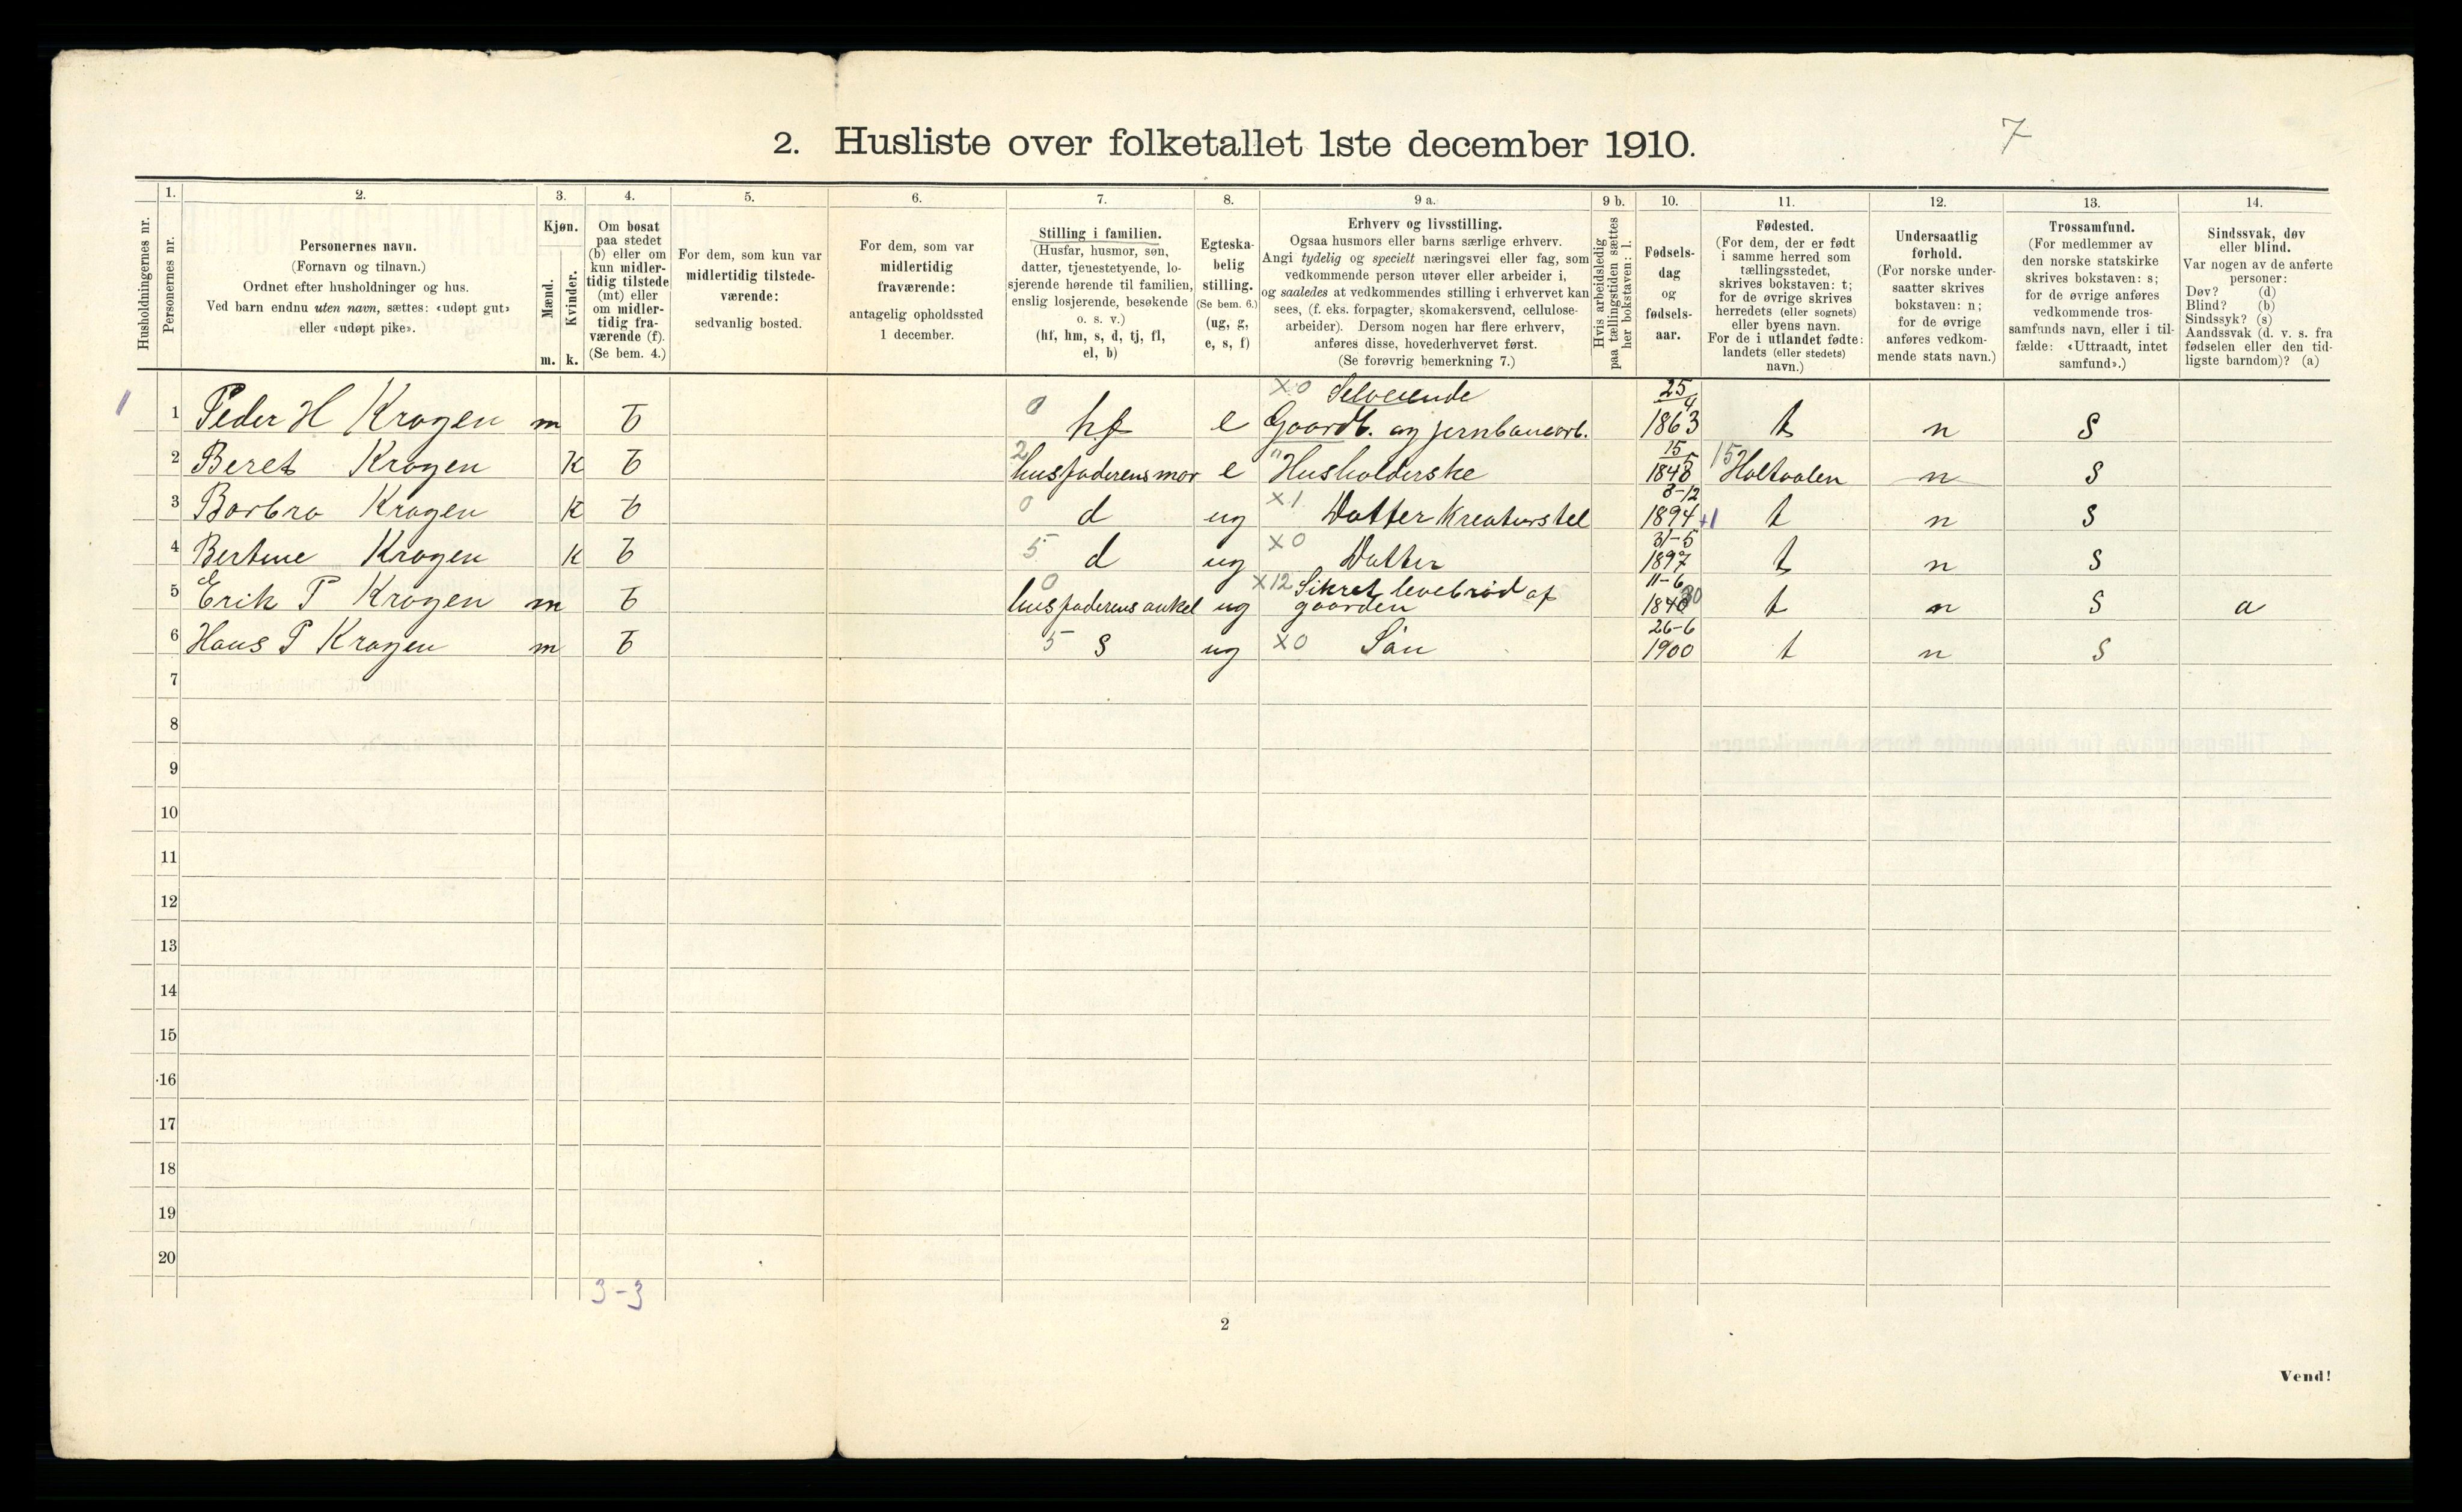 2. Husliste over folketallet 1ste december 1910.
7
Husholdningernes nr.
1.
Personernes nr.
2.
Personernes navn.
(Fornavn og tilnavn.)
Ordnet efter husholdninger og hus.
Ved barn endnu uten navn, sættes: «udøpt gut»
eller «udøpt pike».
3.
Kjøn.
Mænd.
Kvinder.
m. k.
4.
Om bosat
paa stedet
(b) eller om
kun midler-
tidig tilstede
(mt) eller
om midler-
tidig fra-
værende (f).
(Se bem. 4.)
5.
For dem, som kun var
midlertidig tilstede-
værende:
sedvanlig bosted.
6.
For dem, som var
midlertidig
fraværende:
antagelig opholdssted
1 december.
7.
Stilling i familien.
(Husfar, husmor, søn,
datter, tjenestetyende, lo-
sjerende hørende til familien,
enslig losjerende, besøkende
o. s. v.)
(hf, hm, s, d, tj, fl,
el, b)
8.
Egteska-
belig
stilling.
(Se bem. 6.)
(ug, g,
e, s, f)
9 a.
Erhverv og livsstilling.
Ogsaa husmors eller barns særlige erhverv.
Angi tydelig og specielt næringsvei eller fag, som
vedkommende person utøver eller arbeider i,
og saaledes at vedkommendes stilling i erhvervet kan
sees, (f. eks. forpagter, skomakersvend, cellulose-
arbeider). Dersom nogen har flere erhverv,
anføres disse, hovederhvervet først.
(Se forøvrig bemerkning 7.)
9 b.
Hvis arbeidsledig
paa tællingstiden sættes
her bokstaven: l.
10.
Fødsels-
dag
og
fødsels-
aar.
11.
Fødested.
(For dem, der er født
i samme herred som
tællingsstedet,
skrives bokstaven: t;
for de øvrige skrives
herredets (eller sognets)
eller byens navn.
For de i utlandet fødte:
landets (eller stedets)
navn.)
12.
Undersaatlig
forhold.
(For norske under-
saatter skrives
bokstaven: n;
for de øvrige
anføres vedkom-
mende stats navn.)
13.
Trossamfund.
(For medlemmer av
den norske statskirke
skrives bokstaven: s;
for de øvrige anføres
vedkommende tros-
samfunds navn, eller i til-
fælde: «Uttraadt, intet
samfund».)
14.
Sindssvak, døv
eller blind.
Var nogen av de anførte
personer:
Døv? (d)
Blind? (b)
Sindssyk? (s)
Aandssvak (d. v. s. fra
fødselen eller den tid-
ligste barndom)? (a)
1 1 Peder H Krogen m b 0 hf e X0 Selveiende Gaardb. og jernbanearb. 25/4 1863 t n s
2 Beret Krogen k b 2 husfaderens mor e " Husholderske 15/5 1848 15 Holtaalen n s
3 Barbro Krogen k b 0 d ug X1 Datter Kreaturstel 3-12 1894 +1 t n s
4 Bertine Krogen k b 5 d ug X0 Datter 31-5 1897 t n s
5 Erik P Krogen m b 0 husfaderens onkel ug X12 Sikret levebrød af gaarden 11-6 1840 30 t n s a
6 Hans P Krogen m b 5 s ug X0 Søn 26-6 1900 t n s
7
8
9
10
11
12
13
14
15
16
17
18
19
20
3-3
2
Vend!